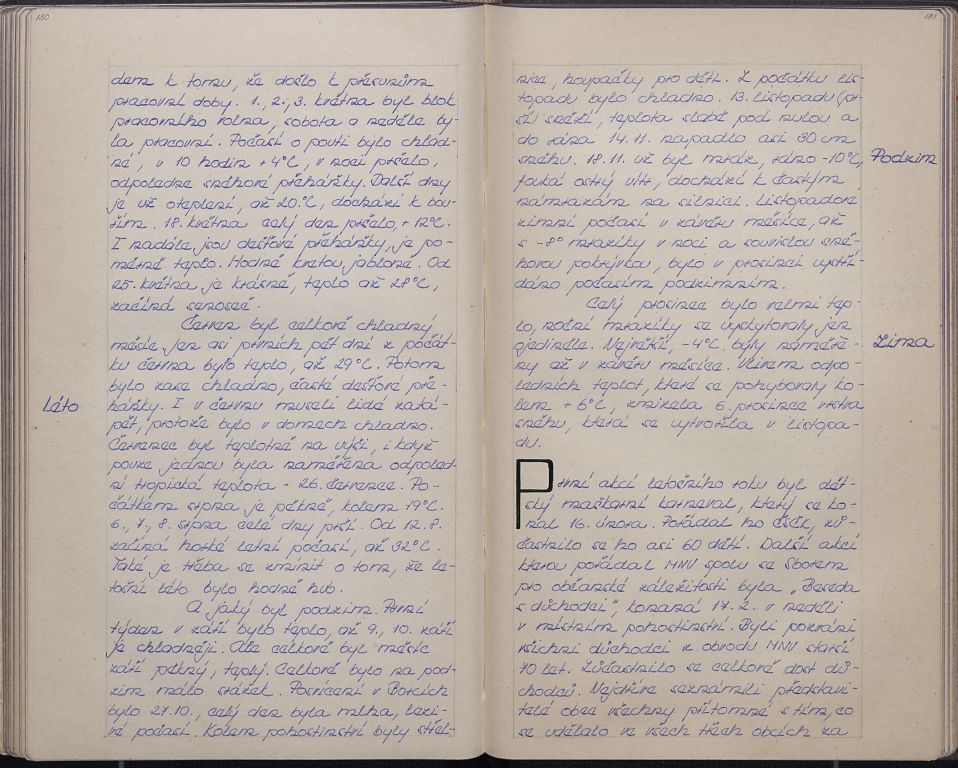 180
dem k tomu, že došlo k přesunům
pracovní doby. 1., 2., 3. května byl blok
pracovního volna, sobota a neděle by-
la pracovní. Počasí o pouti bylo chlad-
né, v 10 hodin +4°C, v noci pršelo,
odpoledne sněhové přeháňky. Další dny
je už oteplení, až 20°C, dochází k bou-
řím. 18. května celý den pršelo, +12°C.
I nadále jsou dešťové přeháňky, je po-
měrně teplo. Hodně kvetou jabloně. Od
25. května je krásně, teplo až 28°C,
začíná senoseč.
Červen byl celkově chladný
měsíc. Jen asi prvních pět dní z počát-
ku června bylo teplo, až 29°C. Potom
bylo zase chladno, časté dešťové pře-
Léto
háňky. I v červnu museli lidé zatá-
pět, protože bylo v domech chladno.
Červenec byl teplotně na výši, i když
pouze jednou byla naměřena odpoled-
ní tropická teplota - 26. července. Po-
čátkem srpna je pěkně, kolem 19°C.
6., 7., 8. srpna celé dny prší. Od 12. 8.
začíná horké letní počasí, až 32°C.
Také je třeba se zmínit o tom, že le-
tošní léto bylo hodně hub.
A jaký byl podzim. První
týden v září bylo teplo, až 9., 10. září
je chladněji. Ale celkově byl měsíc
září pěkný, teplý. Celkově bylo na pod-
zim málo srážek. Posvícení v Borcích
bylo 27.10., celý den byla mlha, lezi-
vé počasí. Kolem pohostinství byly střel-
181
nice, houpačky pro děti. Z počátku lis-
topadu bylo chladno. 13. listopadu (pr-
ší) sněží, teplota slabě pod nulou a
do rána 14.11. napadlo asi 30 cm
sněhu. 18.11. už byl mráz, ráno -10°C,
Podzim
fouká ostrý vítr, dochází k častým
námrazám na silnici. Listopadové
zimní počasí v závěru měsíce, až
s -8° mrazíky v noci a souvislou sně-
hovou pokrývkou, bylo v prosinci vystří-
dáno počasím podzimním.
Celý prosinec bylo velmi tep-
lo, noční mrazíky se vyskytovaly jen
ojediněle. Největší, -4°C byly naměře-
Zima
ny až v závěru měsíce. Vlivem odpo-
ledních teplot, které se pohybovaly ko-
lem +6°C, zmizela 6. prosince vrstva
sněhu, která se vytvořila v listopa-
du.
První akcí letošního roku byl dět-
ský maškarní karneval, který se ko-
nal 16. února. Pořádal ho ČSČK, zú-
častnilo se ho asi 60 dětí. Další akcí
kterou pořádal MNV spolu se Sborem
pro občanské záležitosti byla „Beseda
s důchodci", konaná 17.2. v neděli
v místním pohostinství. Byli pozváni
všichni důchodci z obvodu MNV starší
70 let. Zúčastnilo se celkově dost dů-
chodců. Nejdříve seznámili představi-
telé obce všechny přítomné s tím, co
se udělalo ve všech třech obcích za